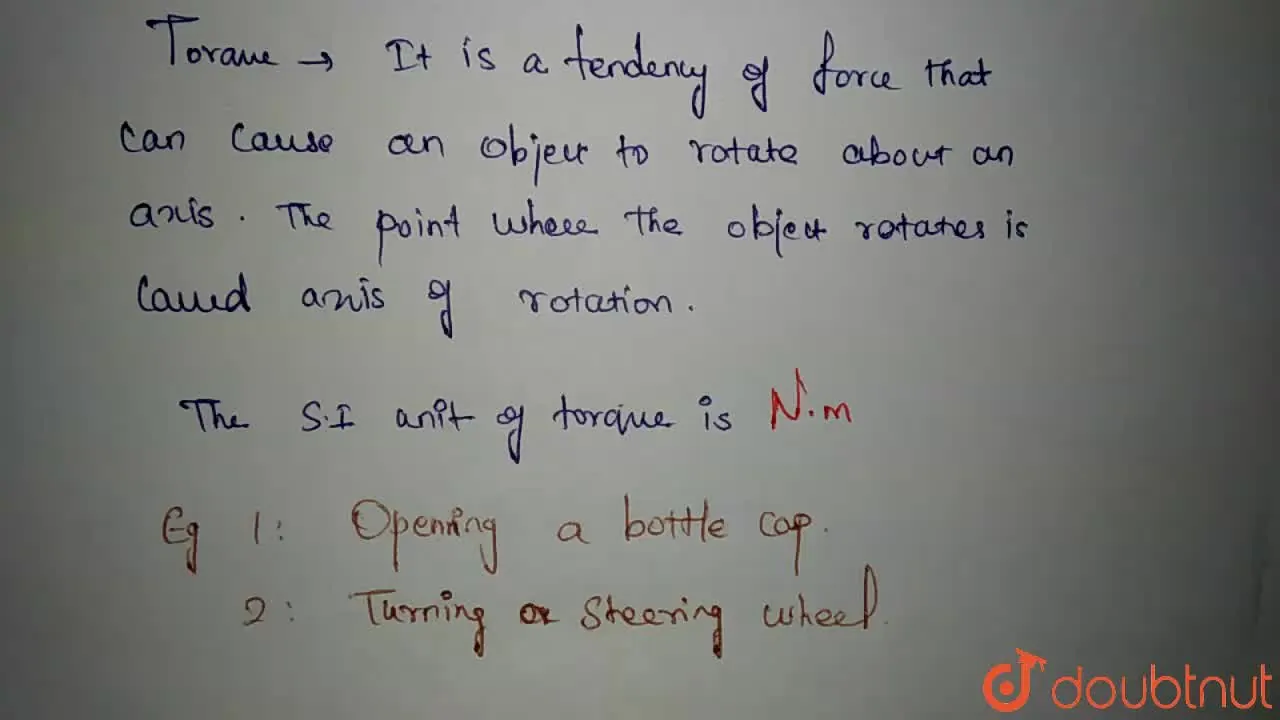 Torque → It is a tendency of force that
can cause an object to rotate about an
axis. The point where the object rotates is
called axis of rotation.
The S.I unit of torque is N.m
Eg 1: Openning a bottle cap.
2: Turning a steering wheel.
doubtnut